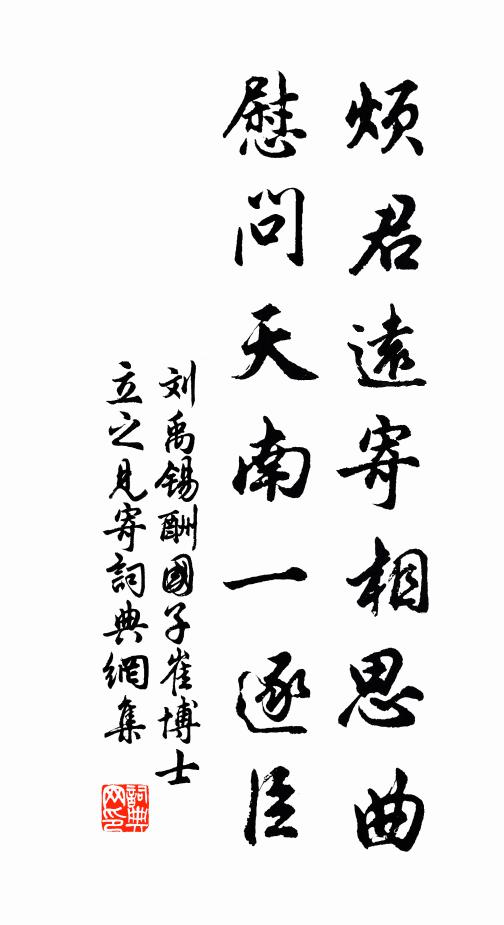 煩君遠寄相思曲
慰問天南一逐臣
刘禹锡酬國子崔博士
立之見寄詞典網集
詞典
网印